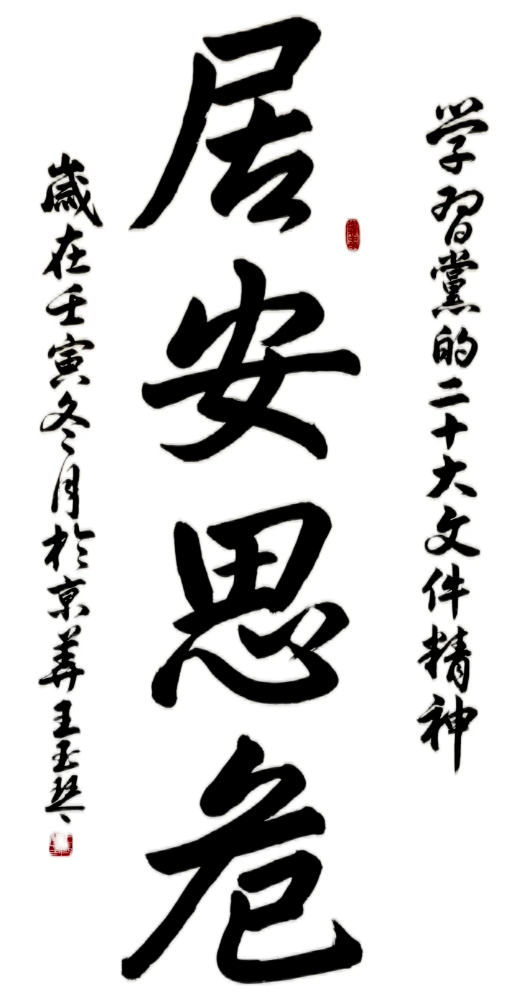 学習黨的二十大文件精神
居安思危
歲在壬寅冬月於京華王玉琴